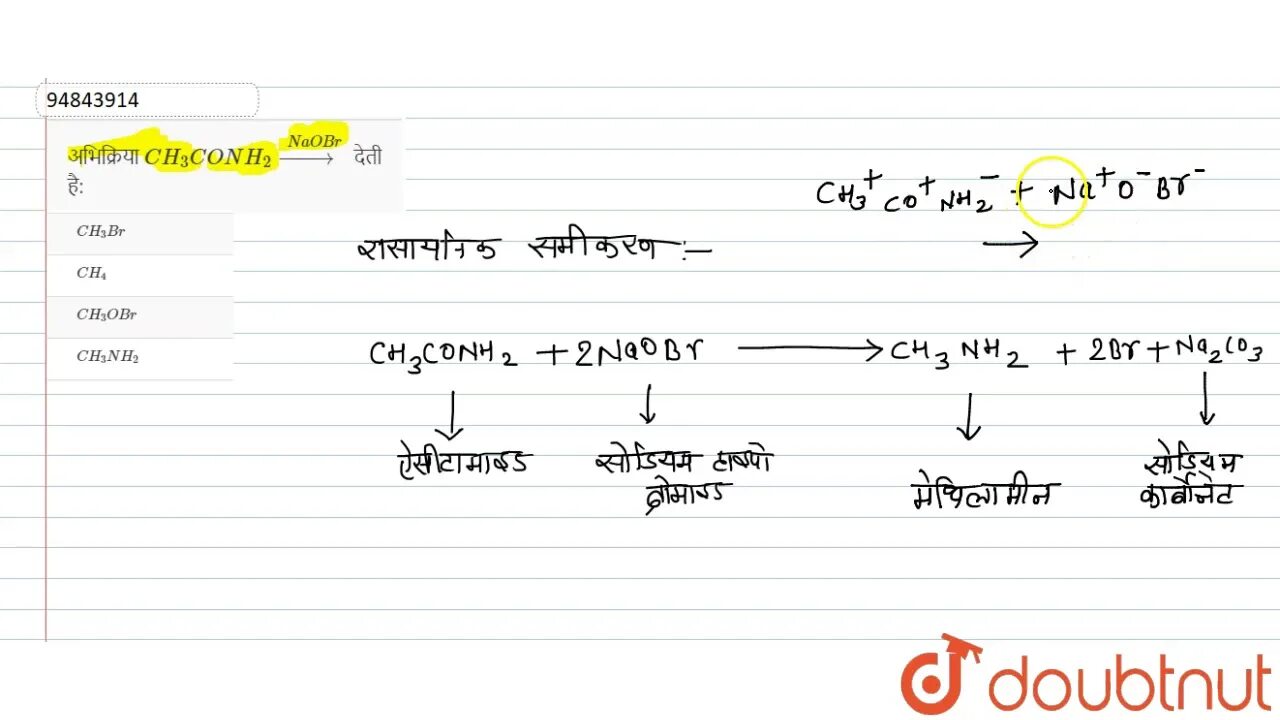 94843914
अभिक्रिया CH₃CONH₂ NaOBr → देती
है:
CH₃Br
CH₄
CH₃OBr
CH₃NH₂
CH₃⁺ CO⁺ NH₂⁻ + Na⁺ O⁻ Br⁻
→
रासायनिक समीकरण :-
CH₃CONH₂ + 2NaOBr → CH₃NH₂ + 2Br + Na₂CO₃
ऐसीटामाइड सोडियम हाइपो ब्रोमाइड मेथिलामीन सोडियम कार्बोनेट
doubtnut